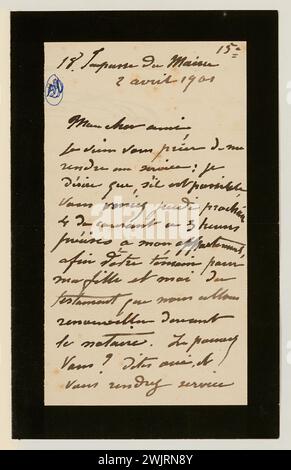 15=
18. Impasse du Maine
2 avril 1901
Mon cher ami
Je viens vous prier de me
rendre un service ; je
désire que, s'il est possible
vous veniez jeudi prochain
4 du courant à 3 heures
précises à mon appartement,
afin d'être témoin pour
ma fille et moi du
testament que nous allons
renouveller devant
le notaire. Le pouvez
vous ? dites oui, et
vous rendrez service
alamy
Image ID: 2WJRN8Y
www.alamy.com